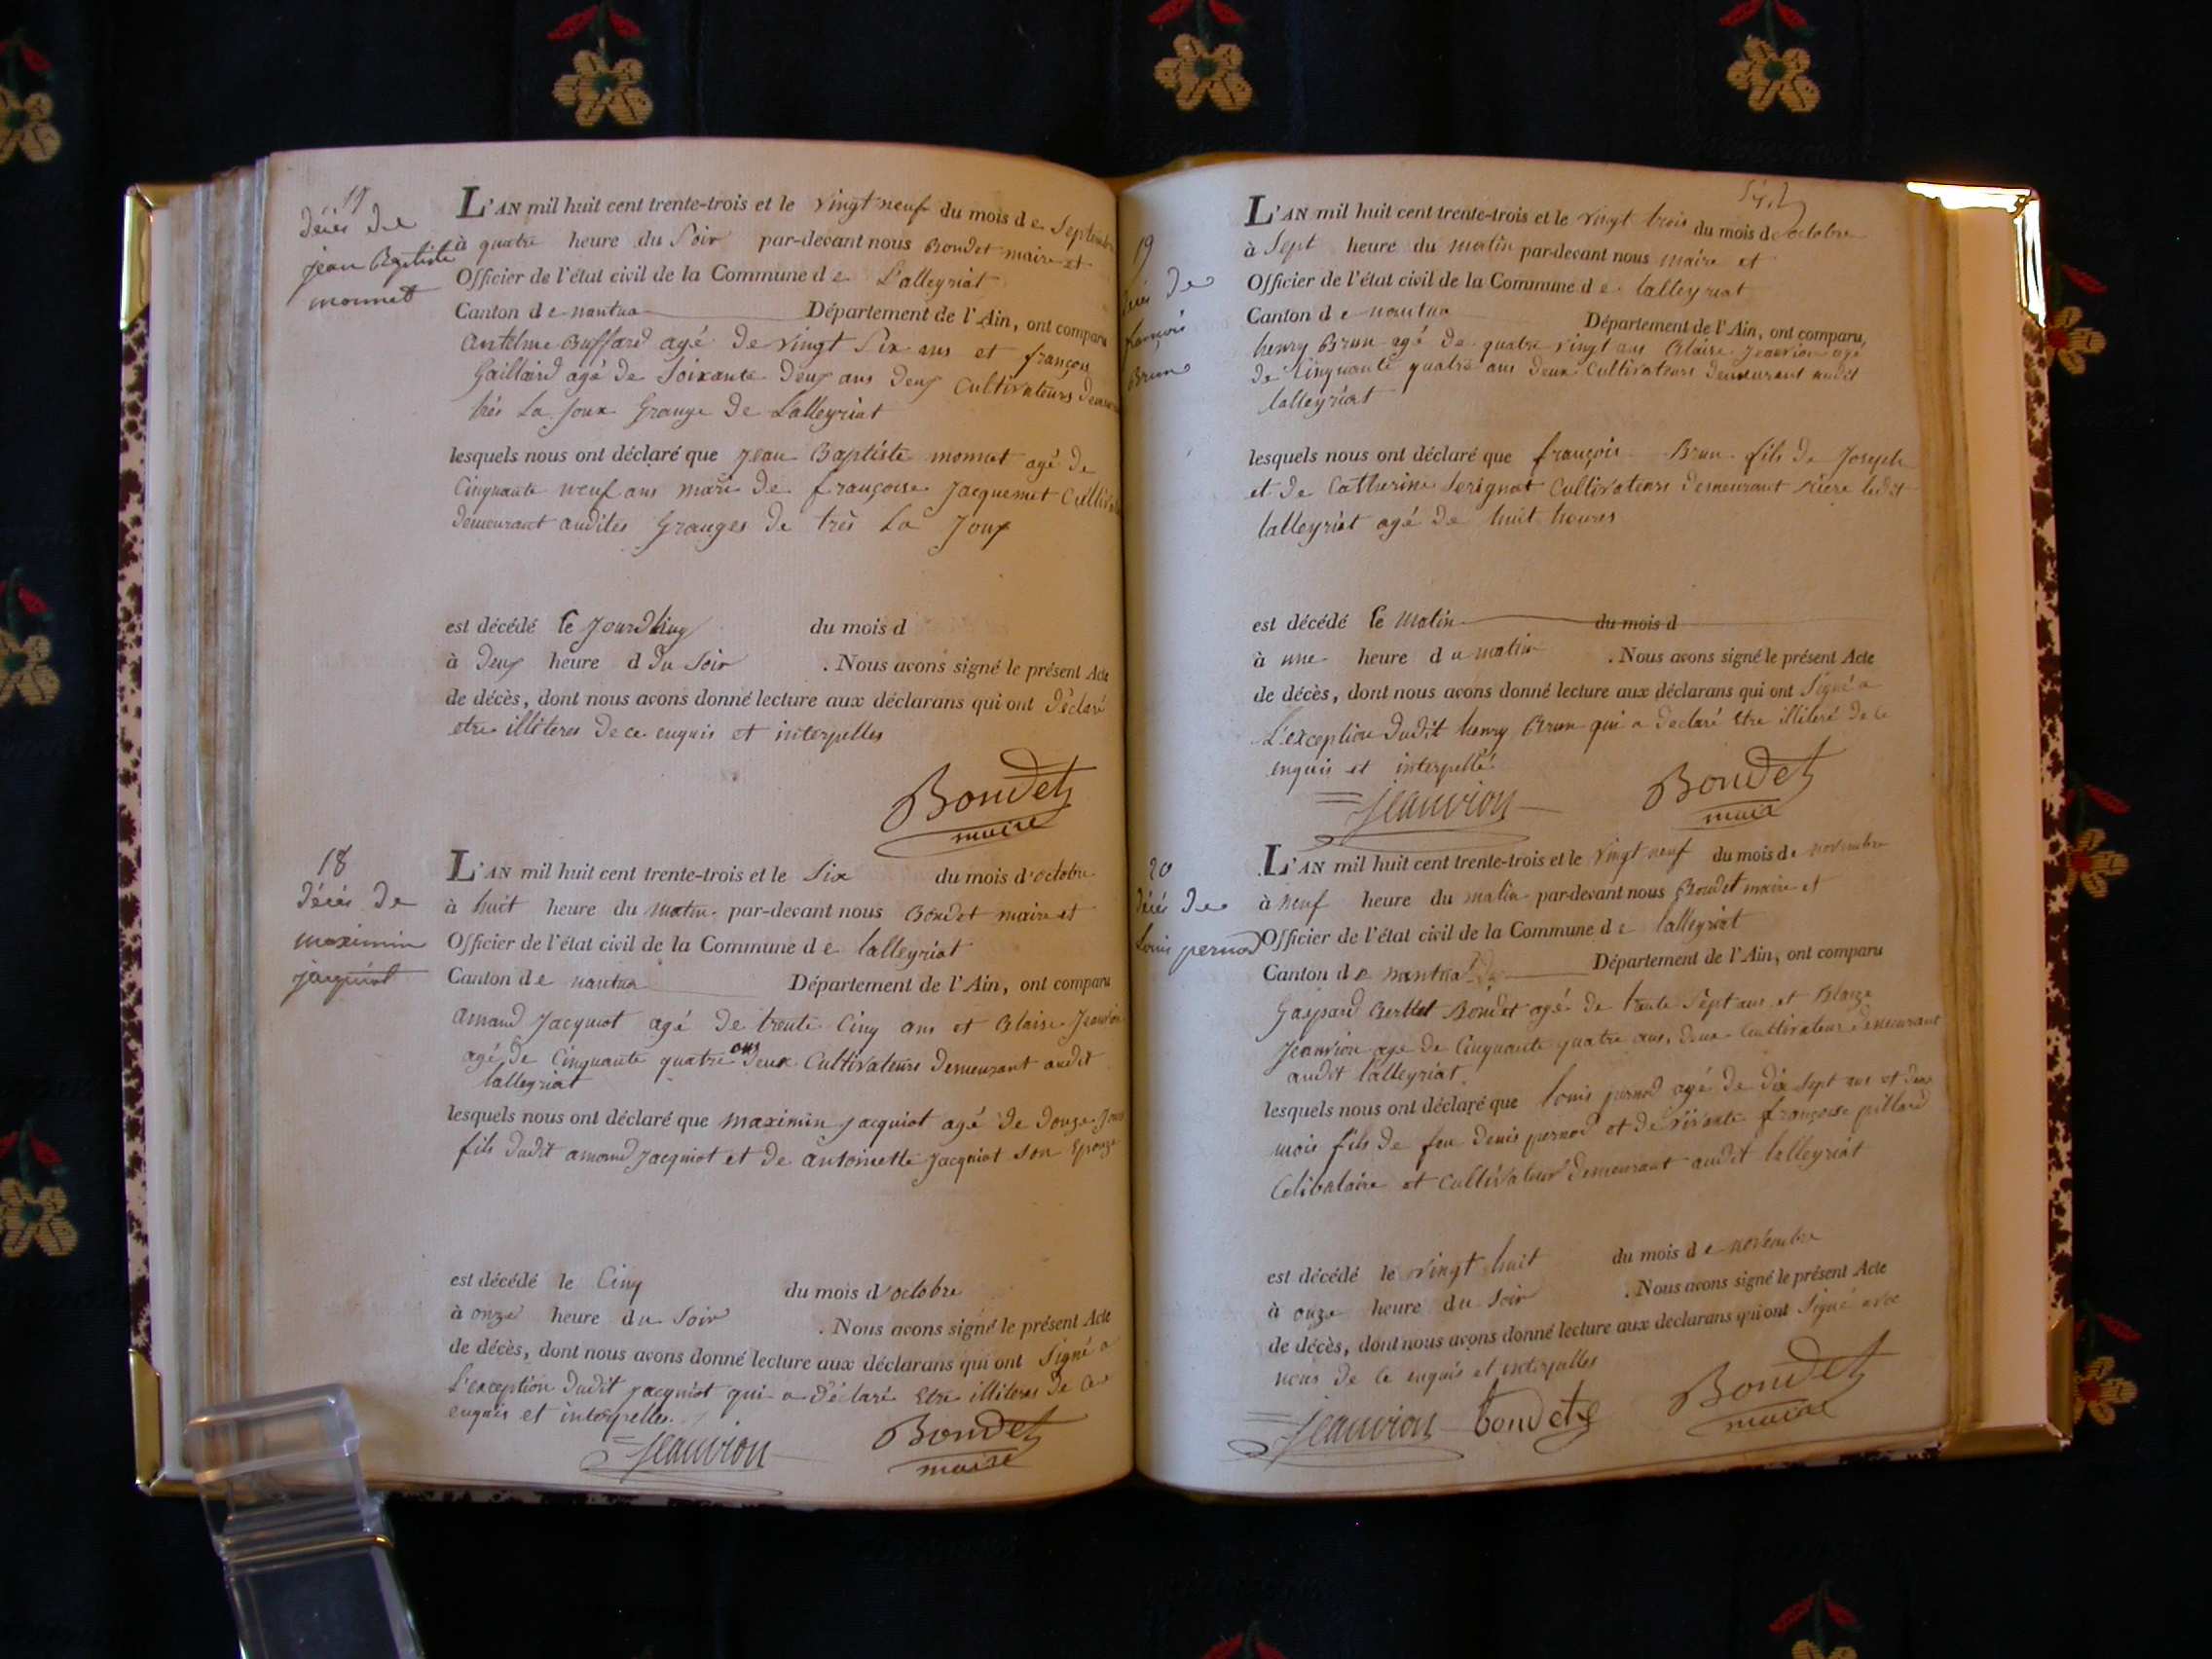 17
décès de
jean Baptiste
monnet
L'AN mil huit cent trente-trois et le vingt neuf du mois de Septembre
à quatre heure du Soir par-devant nous Boudet maire et
Officier de l'état civil de la Commune de Lalleyriat
Canton de nantua Département de l'Ain, ont comparu
Antelme Buffard agé de vingt Six ans et françois
Gaillard agé de Soixante deux ans deux Cultivateurs
très La Joux Grange de Lalleyriat
lesquels nous ont déclaré que jean Baptiste monnet agé de
Cinquante neuf ans mari de françoise Jacquemet
demeurant audites Granges de très La Joux
est décédé le Jourdhuy du mois d
à deux heure d du Soir . Nous avons signé le présent Acte
de décès, dont nous avons donné lecture aux déclarans qui ont déclaré
etre illiteres de ce enquis et interpelles
Boudet
maire
18
décès de
maximin
jacquiot
L'AN mil huit cent trente-trois et le Six du mois d'octobre
à huit heure du matin par-devant nous Boudet maire et
Officier de l'état civil de la Commune de lalleyriat
Canton de nantua Département de l'Ain, ont comparu
amand Jacquiot agé de trente Cinq ans et Blaise Jeanvion
agé de Cinquante quatre ans deux Cultivateurs demeurant audit
lalleyriat
lesquels nous ont déclaré que maximin jacquiot agé de douze Jours
fils dudit amand Jacquiot et de antoinette Jacquiot Son Epouze
est décédé le Cinq du mois d'octobre
à onze heure du Soir . Nous avons signé le présent Acte
de décès, dont nous avons donné lecture aux déclarans qui ont Signé a
L'exception dudit jacquiot qui a déclaré Etre illiteres de ce
enquis et interpelles.
Jeanvion
Boudet
maire
19
décès de
françois
Brun
L'AN mil huit cent trente-trois et le vingt trois du mois de octobre
à Sept heure du matin par-devant nous maire et
Officier de l'état civil de la Commune de lalleyriat
Canton de nantua Département de l'Ain, ont comparu,
henry Brun agé de quatre vingt ans Blaise Jeanvion agé
de Cinquante quatre ans deux Cultivateurs demeurant audit
lalleyriat
lesquels nous ont déclaré que françois Brun fils de Joseph
et de Catherine Serignat Cultivateurs demeurant ledit
lalleyriat agé de huit heures
est décédé le matin du mois d
à une heure du matin . Nous avons signé le présent Acte
de décès, dont nous avons donné lecture aux déclarans qui ont Signé a
L'exception dudit henry Brun qui a declaré Etre illiteré de ce
enquis et interpellé.
Jeanvion
Boudet
maire
20
décès de
Louis pernod
L'AN mil huit cent trente-trois et le vingt neuf du mois de novembre
à neuf heure du matin par-devant nous Boudet maire et
Officier de l'état civil de la Commune de lalleyriat
Canton de nantua Département de l'Ain, ont comparu
Gaspard Berthet Bondet agé de trente Sept ans et Blaize
Jeanvion age de Cinquante quatre ans, deux Cultivateurs demeurant
audit lalleyriat.
lesquels nous ont déclaré que louis pernod agé de dix Sept ans et deux
mois fils de feu denis pernod et de vivante françoise pillard
Celibataire et Cultivateur demeurant audit lalleyriat
est décédé le vingt huit du mois de novembre
à onze heure du Soir . Nous avons signé le présent Acte
de décès, dont nous avons donné lecture aux declarans qui ont Signé avec
nous de ce enquis et interpelles
Jeanvion
bondet
Boudet
maire